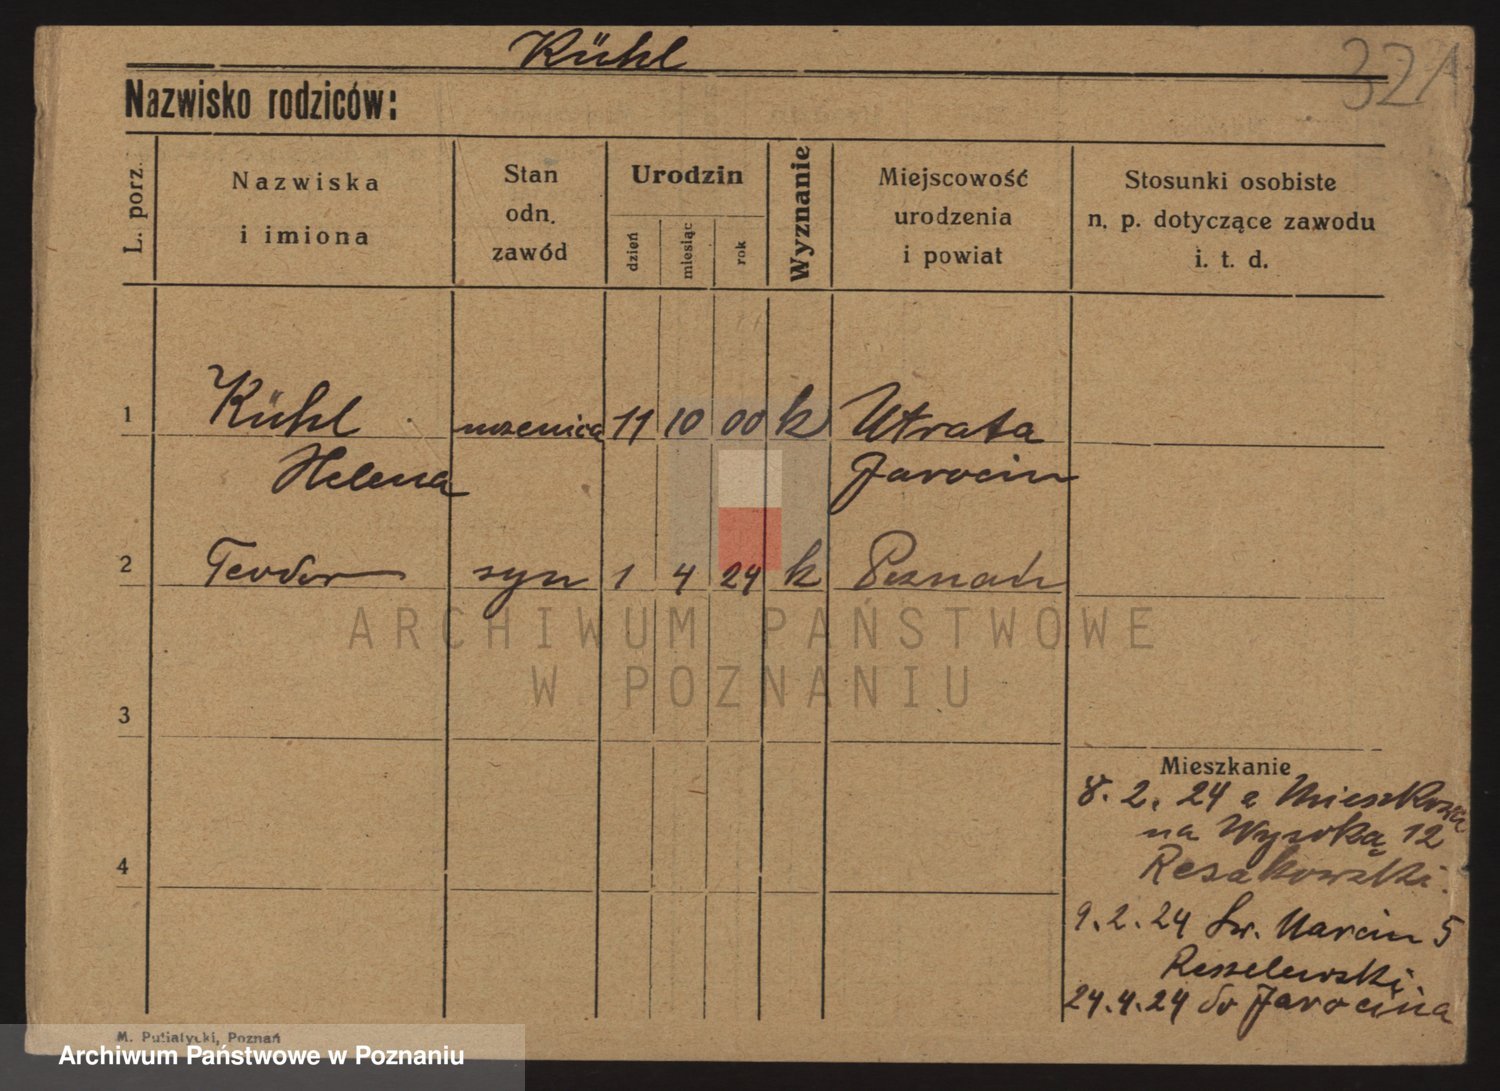 Kühl
321
Nazwisko rodziców:
L. porz.
Nazwiska
i imiona
Stan
odn.
zawód
Urodzin
dzień
miesiąc
rok
Wyznanie
Miejscowość
urodzenia
i powiat
Stosunki osobiste
n. p. dotyczące zawodu
i. t. d.
1 Kühl 11 10 00 k Utrata
Helena Jarocin
2 Teodor syn 1 4 24 k Poznań
ARCHIWUM PAŃSTWOWE
W POZNANIU
3
Mieszkanie
8. 2. 24 z Mieszkowa
na Wysoką 12
4
9. 2. 24 Św. Marcin 5
24.4.24 do Jarocina
M. Putiatycki, Poznań
Archiwum Państwowe w Poznaniu